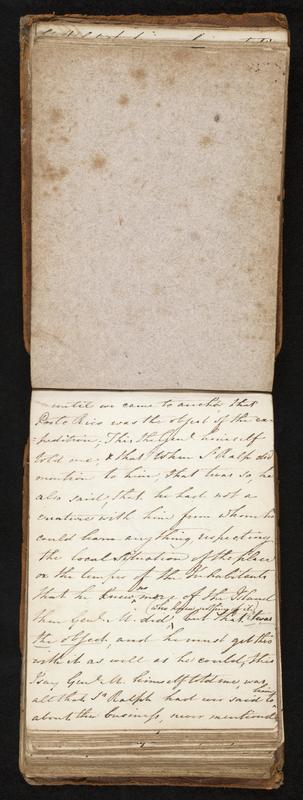 until we came to anchor that
Porto Rico was the object of the ex-
-pedition, This the Genl. himself
told me, & that when Sr Ralph did
mention to him, that twas so, he
also said, that he had not a
creature with him from whom he
could learn any thing, respecting
the local situation of the place
or the temper of the Inhabitants
that he knew no more of the Island
than Genl. M. did, (who knew nothing of it) but that twas
the object, and he must get thro'
with it as well as he could, this
I say Genl. M. himself told me, was
all that Sr Ralph had ever said to him
about the business, never mentioned